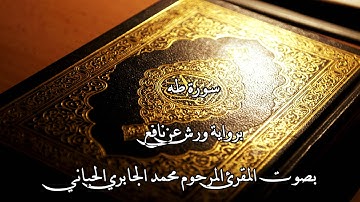 سورة طه
برواية ورش عن نافع
بصوت المقرئ المرحوم محمد الجابري الحياني